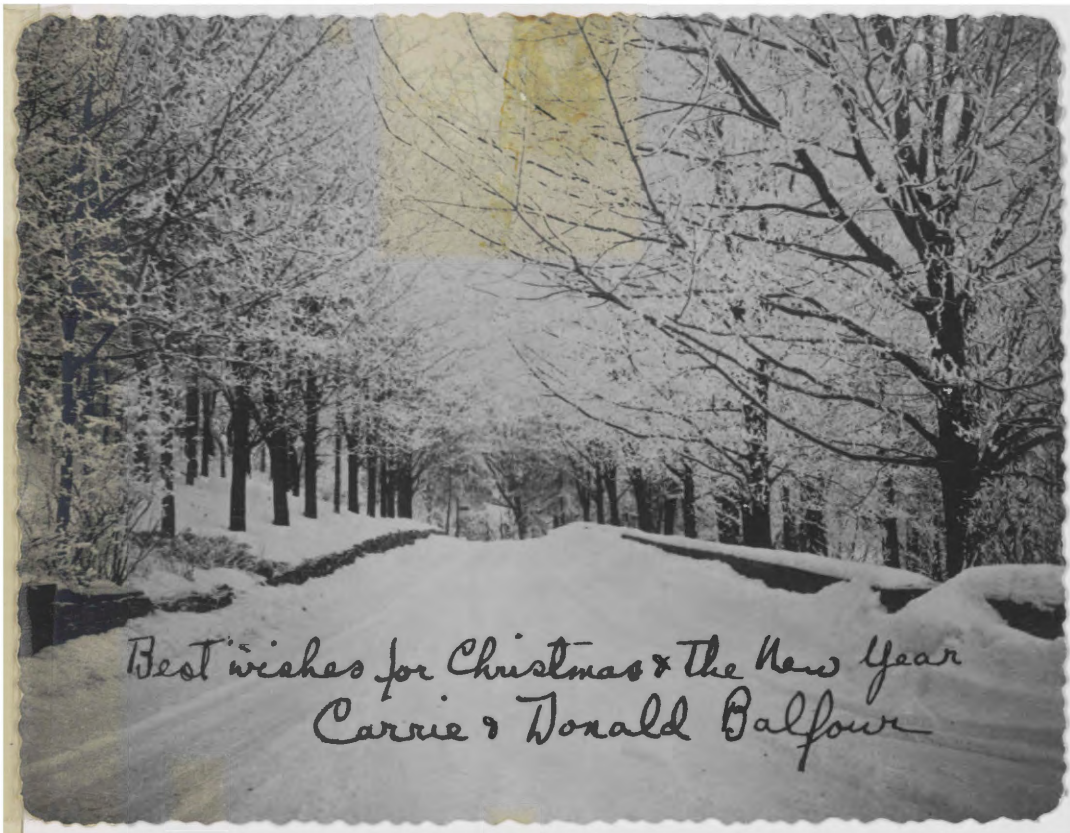 Best wishes for Christmas & The New Year
Carrie & Donald Balfour